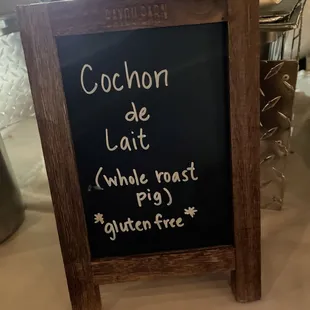 Cochon
de
Lait
(whole roast
pig)
*gluten free*